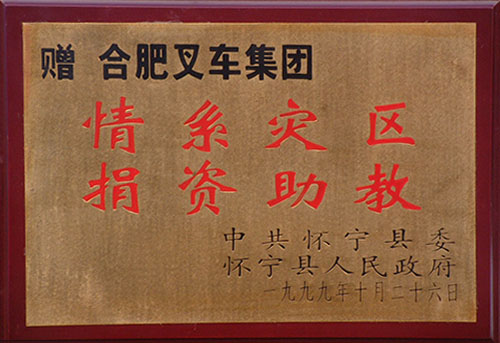 赠 合肥叉车集团
情系灾区
捐资助教
中共怀宁县委
怀宁县人民政府
一九九九年十月二十六日